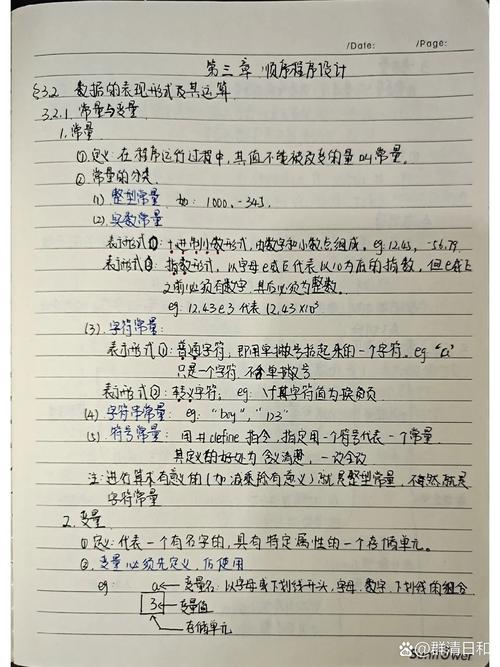 /Date: /Page:
第三章 顺序程序设计
§3.2 数据的表现形式及其运算
3.2.1 常量与变量
1.常量
①定义:在程序运行过程中,其值不能被改变的量叫常量。
②常量的分类
(1) 整型常量 如:1000,-345,
(2) 实数常量
表示形式①:十进制小数形式,由数字和小数点组成。eg:12.45, -56.79
表示形式②:指数形式,以字母e或E代表以10为底的指数,但e或E
之前必须有数字,其后必须为整数。
eg:12.43e3代表12.43×10³
(3) 字符常量:
表示形式①:普通字符,即用单撇号括起来的一个字符。eg
只是一个字符,不含单撇号
表示形式②:转义字符; eg: \f其字符值为换页
(4) 字符串常量:eg:"boy","123"
(5) 符号常量: 用#define指令,指定用一个符号代表一个常量
其定义的好处为含义清楚,一改全改
注:进行算术有意义的(加减乘除有意义)就是整型常量,不然就是
字符常量
2.变量
①定义:代表一个有名字的,具有特定属性的一个存储单元。
②变量必须先定义,后使用
eg: a←变量名:以字母或下划线开头,字母、数字、下划线的组合
3←变量值
存储单元
Sunflower
@群清日和